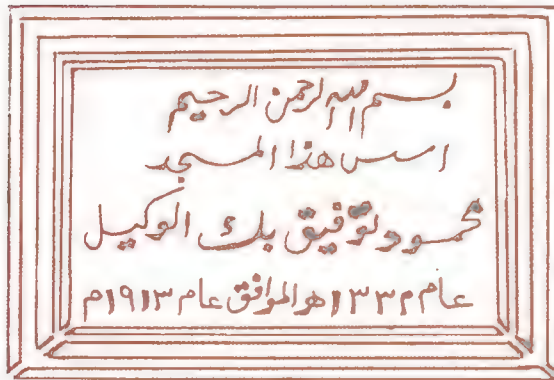 بسم الله الرحمن الرحيم
اسس هذا المسجد
محمود توفيق بك الوكيل
عام ١٣٣٢ه الموافق عام ١٩١٣م